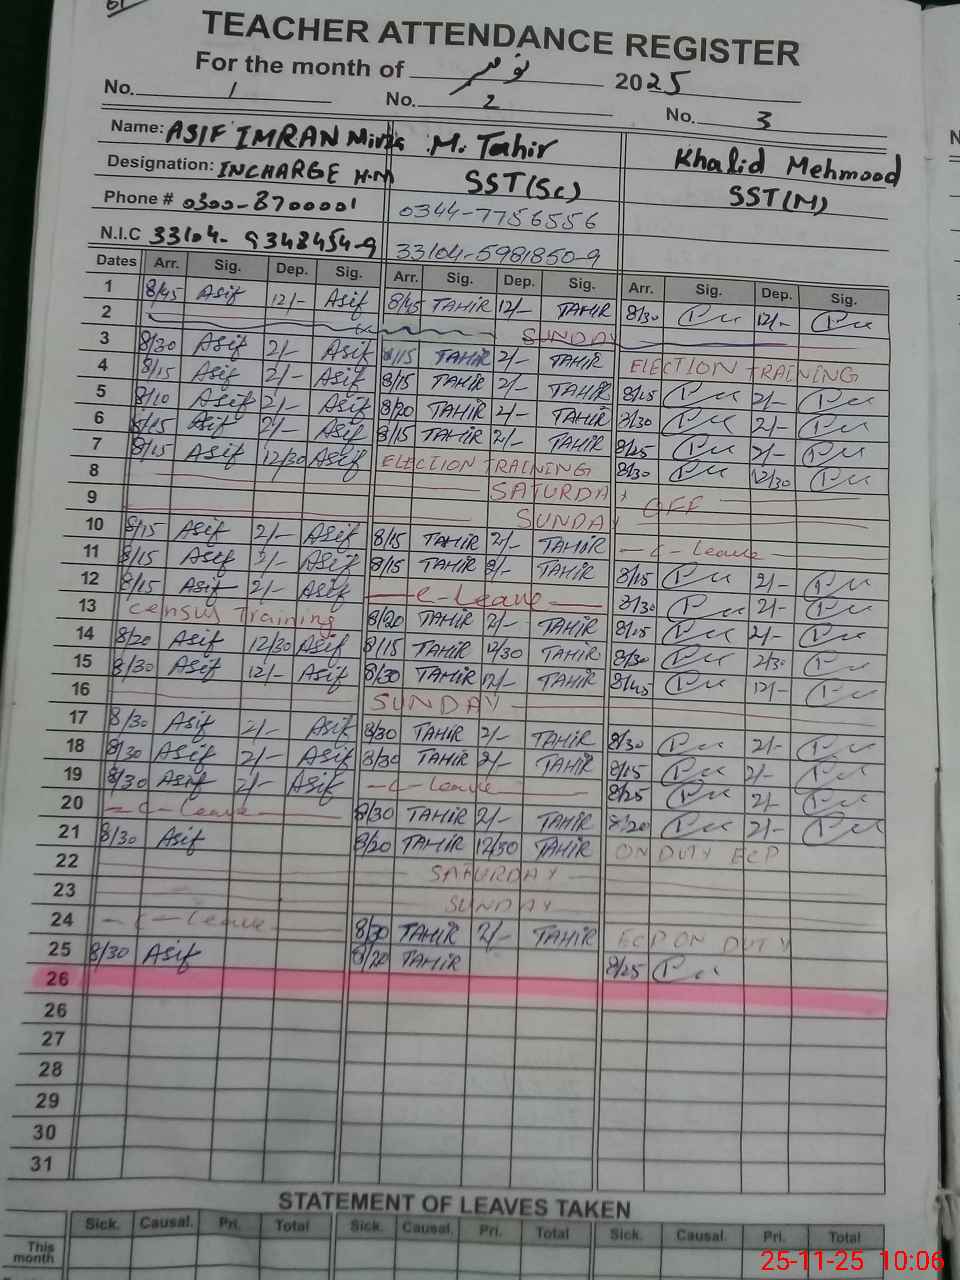 TEACHER ATTENDANCE REGISTER
For the month of نومبر 2025
No. 1 No. 2 No. 3
Name: ASIF IMRAN Mirza M. Tahir Khalid Mehmood
Designation: INCHARGE H.M SST(Sc) SST(M)
Phone # 0300-8700001 0344-7756556
N.I.C 33104-9348454-9 33104-5981850-9
Dates Arr. Sig. Dep. Sig. Arr. Sig. Dep. Sig. Arr. Sig. Dep. Sig.
1 8/45 Asif 12/- Asif 8/45 TAHIR 12/- TAHIR 8/30 12/-
2 SUNDAY
3 8/30 Asif 2/- Asif 8/15 TAHIR 2/- TAHIR ELECTION TRAINING
4 8/15 Asif 2/- Asif 8/15 TAHIR 2/- TAHIR 8/25 2/-
5 8/10 Asif 2/- Asif 8/20 TAHIR 2/- TAHIR 8/30 2/-
6 8/15 Asif 2/- Asif 8/15 TAHIR 2/- TAHIR 8/25 2/-
7 8/15 Asif 12/30 Asif ELECTION TRAINING 8/30 12/30
8 SATURDAY OFF
9 SUNDAY
10 8/15 Asif 2/- Asif 8/15 TAHIR 2/- TAHIR - C - Leave
11 8/15 Asif 2/- Asif 8/15 TAHIR 2/- TAHIR 8/15 2/-
12 8/15 Asif 2/- Asif - C - Leave - 8/30 2/-
13 Census Training 8/20 TAHIR 2/- TAHIR 8/25 2/-
14 8/20 Asif 12/30 Asif 8/15 TAHIR 12/30 TAHIR 8/30 2/30
15 8/30 Asif 12/- Asif 8/30 TAHIR 12/- TAHIR 8/45 12/-
16 SUNDAY
17 8/30 Asif 2/- Asif 8/30 TAHIR 2/- TAHIR 8/30 2/-
18 8/30 Asif 2/- Asif 8/30 TAHIR 2/- TAHIR 8/15 2/-
19 8/30 Asif 2/- Asif - C - Leave 8/25 2/-
20 - C - Leave 8/30 TAHIR 2/- TAHIR 8/20 2/-
21 8/30 Asif 8/20 TAHIR 12/30 TAHIR ON DUTY ECP
22 SATURDAY
23 SUNDAY
24 - C - Leave 8/30 TAHIR 2/- TAHIR ECP ON DUTY
25 8/30 Asif 8/20 TAHIR 8/25
26
26
27
28
29
30
31
STATEMENT OF LEAVES TAKEN
Sick. Causal. Pri. Total Sick. Causal. Pri. Total Sick. Causal. Pri. Total
This month
25-11-25 10:06